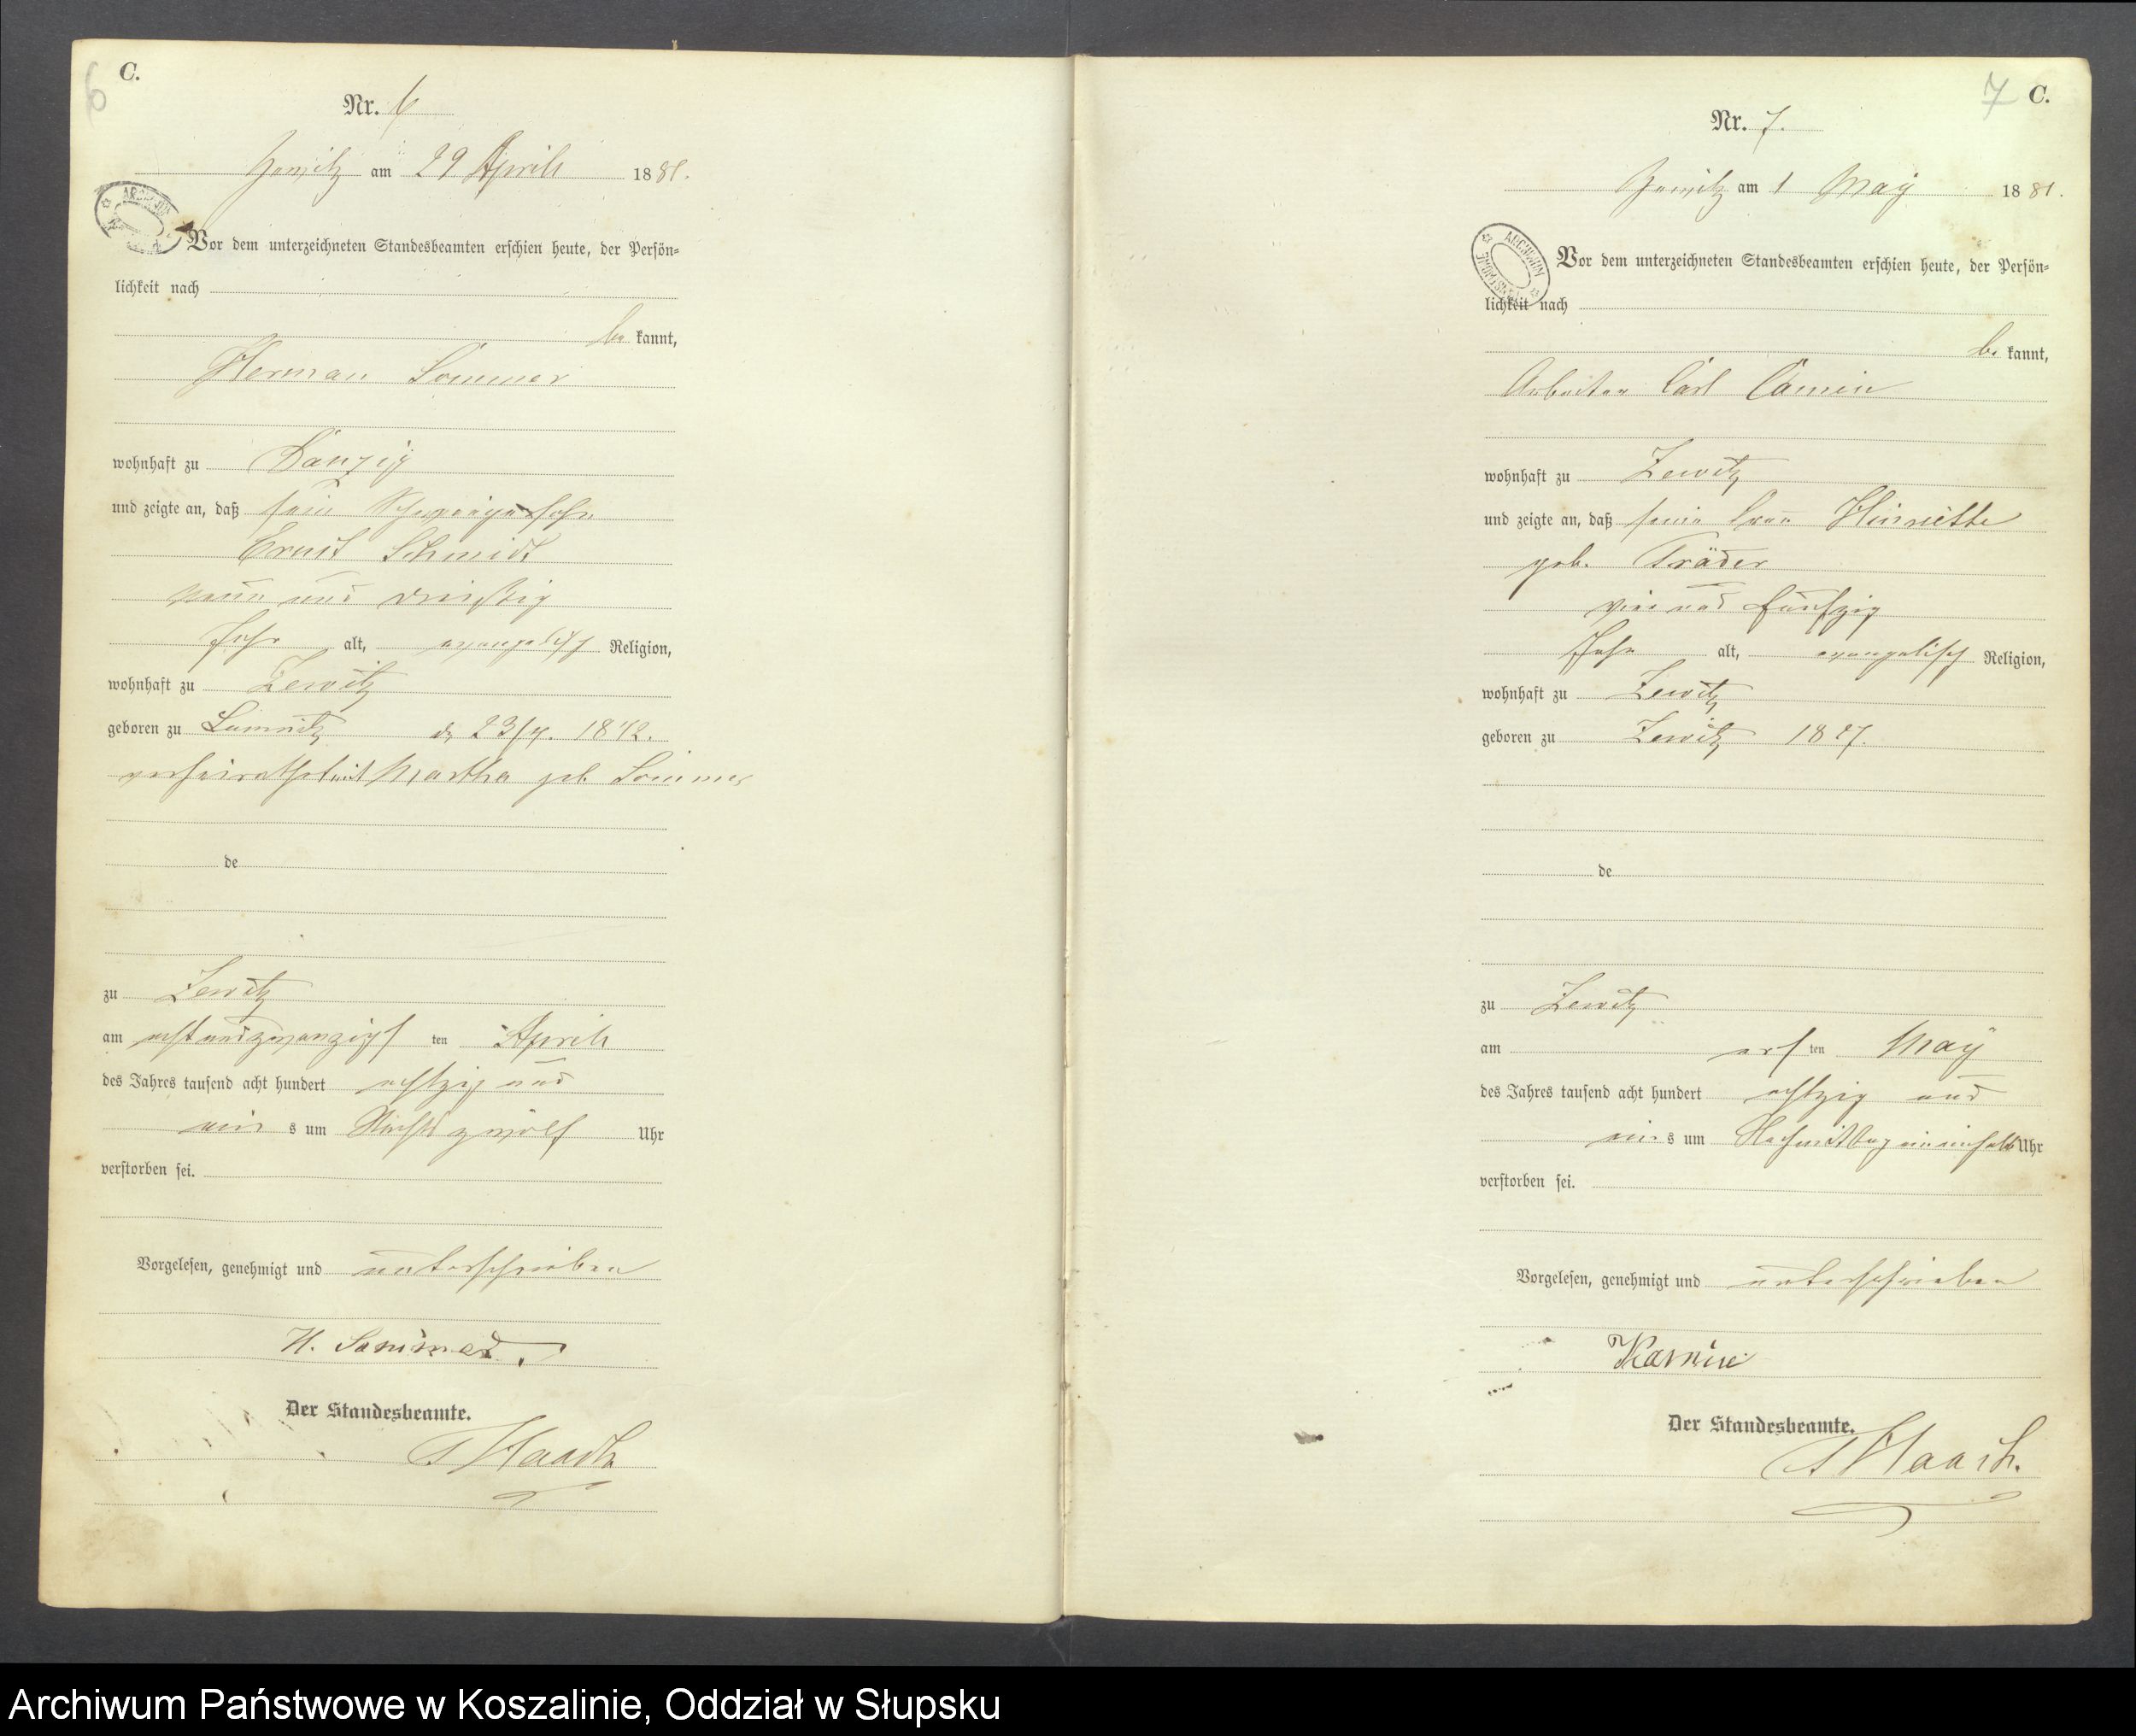 6
C.
Nr. 6
Zewitz am 29 April 1881.
Vor dem unterzeichneten Standesbeamten erschien heute, der Persön=
lichkeit nach
be kannt,
Herman Sommer
wohnhaft zu Danzig
und zeigte an, daß sein Schwiegersohn
Ernst Schmidt
neun und dreißig
Jahr alt, evangelisch Religion,
wohnhaft zu Zewitz
geboren zu 1842.
verheirathet mit Martha geb Sommer
de
zu Zewitz
am achtundzwanzigs ten April
des Jahres tausend acht hundert achtzig und
ein s um Nachts zwölf Uhr
verstorben sei.
Vorgelesen, genehmigt und unterschrieben
H. Sommer.
Der Standesbeamte.
Haasch
7
C.
Nr. 7.
Zewitz am 1 May 1881.
Vor dem unterzeichneten Standesbeamten erschien heute, der Persön=
lichkeit nach
be kannt,
Arbeiter Carl Camin
wohnhaft zu Zewitz
und zeigte an, daß seine Frau Hinriette
geb. Träder
vier und fünfzig
Jahr alt, evangelisch Religion,
wohnhaft zu Zewitz
geboren zu Zewitz 1827.
de
zu Zewitz
am ers ten May
des Jahres tausend acht hundert achtzig und
ein s um Nachmittag Uhr
verstorben sei.
Vorgelesen, genehmigt und unterschrieben
Kamin
Der Standesbeamte.
Haasch.
Archiwum Państwowe w Koszalinie, Oddział w Słupsku